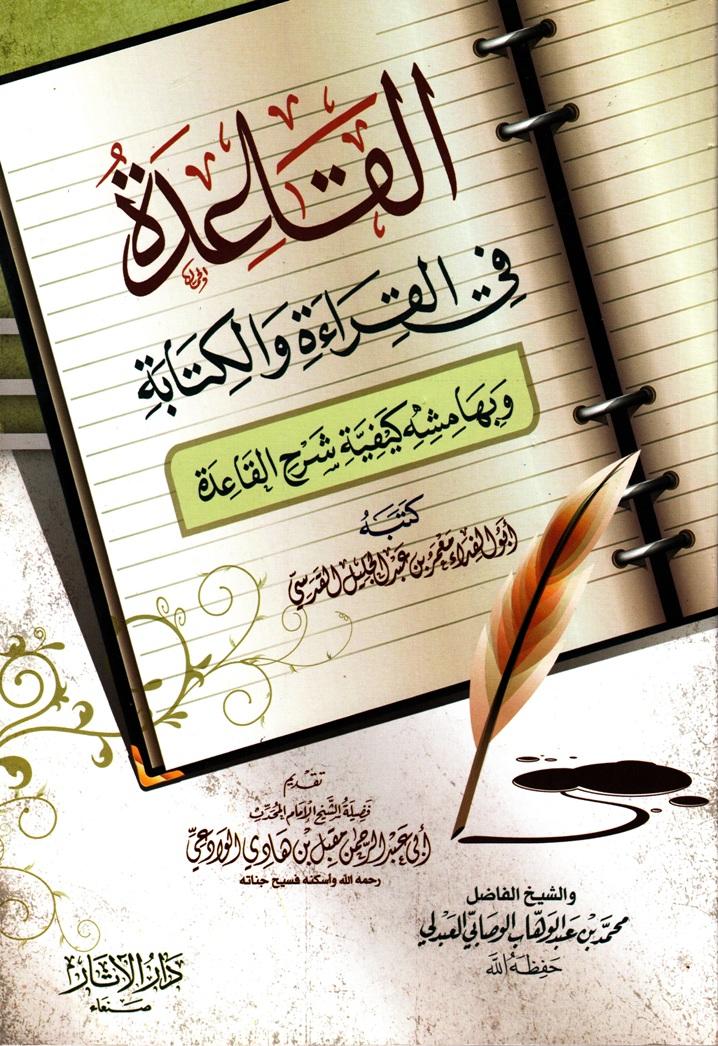 القَاعِدَةُ
فِي القِرَاءَةِ وَالكِتَابَةِ
وَبِهَامِشِهِ كَيْفِيَّةِ شَرْحِ القَاعِدَة
كَتَبَهُ
أَبُو الفِدَاء مَعْمَر بن عَبْد الجَلِيل القَدَسِيّ
تقديم
فَضِيلَةُ الشَّيْخِ الإِمَامِ المُحَدِّثِ
أَبِي عَبْدِ الرَّحمٰن مقبل بْن هَادِي الوَادِعيّ
رحمه الله وأسكنه فسيح جناته
والشيخ الفاضل
محمّد بن عَبد الوَهَّاب الوصَابيّ العَبدلي
حَفِظَهُ اللَّه
دَارُ الآثَار
صَنعَاء